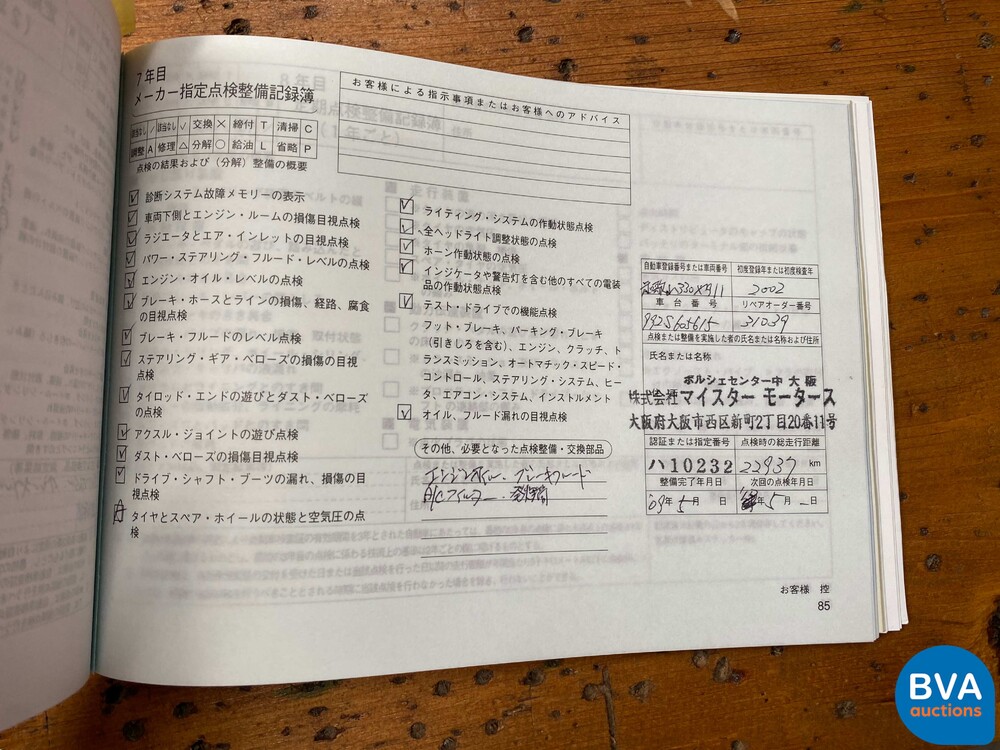 7年目
メーカー指定点検整備記録簿
該当なし / 該当なし レ 交換 × 締付 T 清掃 C
調整 A 修理 △ 分解 ○ 給油 L 省略 P
点検の結果および(分解)整備の概要
お客様による指示事項またはお客様へのアドバイス
診断システム故障メモリーの表示
車両下側とエンジン・ルームの損傷目視点検
ラジエータとエア・インレットの目視点検
パワー・ステアリング・フルード・レベルの点検
エンジン・オイル・レベルの点検
ブレーキ・ホースとラインの損傷、経路、腐食
の目視点検
ブレーキ・フルードのレベル点検
ステアリング・ギア・ベローズの損傷の目視
点検
タイロッド・エンドの遊びとダスト・ベローズ
の点検
アクスル・ジョイントの遊び点検
ダスト・ベローズの損傷目視点検
ドライブ・シャフト・ブーツの漏れ、損傷の目
視点検
A タイヤとスペア・ホイールの状態と空気圧の点
検
ライティング・システムの作動状態点検
全ヘッドライト調整状態の点検
ホーン作動状態の点検
インジケータや警告灯を含む他のすべての電装
品の作動状態点検
テスト・ドライブでの機能点検
フット・ブレーキ、パーキング・ブレーキ
(引きしろを含む)、エンジン、クラッチ、ト
ランスミッション、オートマチック・スピード・
コントロール、ステアリング・システム、ヒー
タ、エアコン・システム、インストルメント
オイル、フルード漏れの目視点検
その他、必要となった点検整備・交換部品
エンジンオイル、ブレーキフルード
A/Cフィルター
自動車登録番号または車両番号 初度登録年または初度検査年
2002
車台番号 リペアオーダー番号
99ZS605615 31039
点検または整備を実施した者の氏名または名称および住所
氏名または名称
ポルシェセンター中大阪
株式会社マイスター モータース
大阪府大阪市西区新町2丁目20番11号
認証または指定番号 点検時の総走行距離
ハ10232 22937 km
整備完了年月日 次回の点検年月日
'09年5月 日 年5月 日
お客様 控
85
BVA
auctions